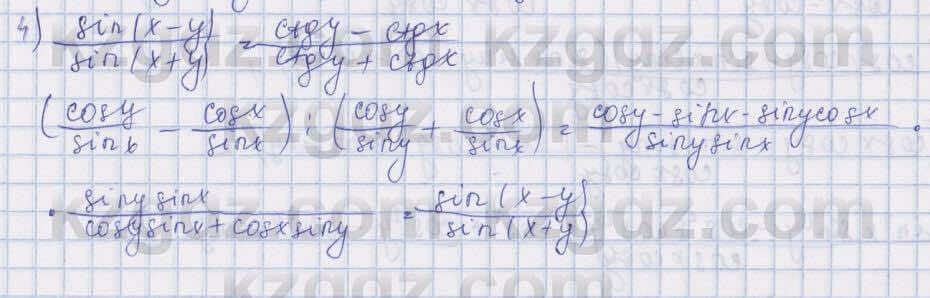 4) sin(x-y)/sin(x+y) = (ctgy - ctgx)/(ctgy + ctgx)
(cosy/sinx - cosx/sinx) : (cosy/siny + cosx/sinx) = (cosy - sinx - sinycosx)/(sinysinx) ·
· sinysinx/(cosysinx + cosxsiny) = sin(x-y)/sin(x+y)
kzgdz.com
kzgdz.com
kzgdz.com
kzgdz.com